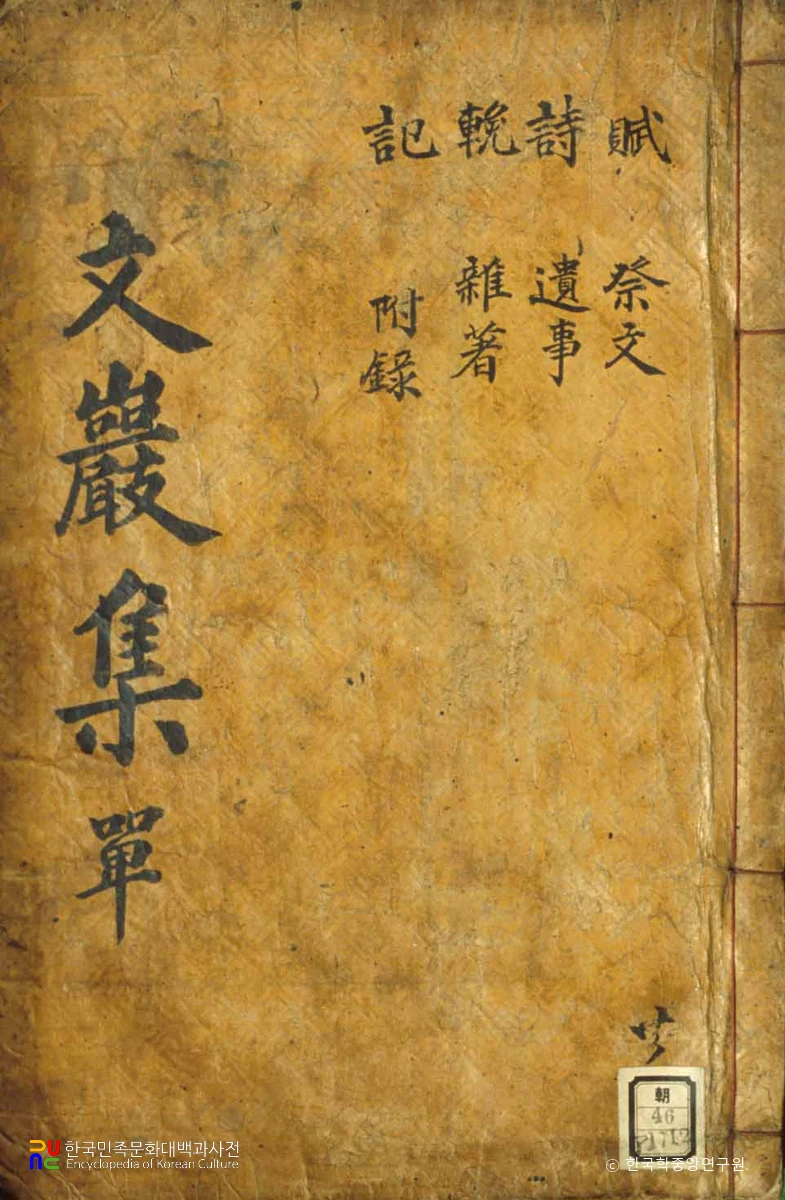 賦 祭文
詩 遺事
輓 雜著
記 附錄
文巖集 單
共
朝
46
한국민족문화대백과사전
Encyclopedia of Korean Culture
© 한국학중앙연구원